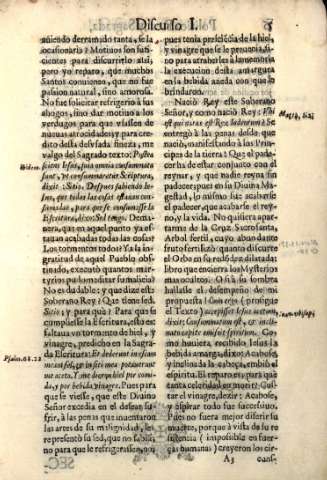 Discurso I.
auiendo derramado tanta, se la
ocasionaria? Motiuos son sufi-
cientes para discurrirlo assi;
pero yo reparo, que muchos
Santos conuienen, que no fue
passion natural, sino amorosa.
No fue solicitar refrigerio à sus
ahogos, sino dar motiuo à los
verdugos para que vsassen de
nueuas atrocidades; y para cre-
dito desta desusada fineza, me
valgo del Sagrado texto: Postea
sciens Iesus, quia omnia consummata
sunt, vt consummaretur Scriptura,
dixit: Sitio. Despues sabiendo Ie-
sus, que todas las cosas estauan con-
sumadas, para que se consumasse la
Escritura, dixo: Sed tengo. De ma-
nera, que en aquel punto ya es-
tauan acabadas todas las cosas?
Los tormentos todos? Ya la in-
gratitud de aquel Pueblo obsti-
nado, executò quantos mar-
tyrios pudo meditar su malicia?
No es dudable: y que dize este
Soberano Rey? Que tiene sed.
Sitio; y para què? Para que se
cumpliesse la Escritura, esto es:
faltaua vn tormento de hiel, y
vinagre, predicho en la Sagra-
da Escritura: Et dederunt in escam
meam fel, & in siti mea potauerunt
me aceto. Y me dieron hiel por comi-
da, y por bebida vinagre. Pues para
que se viesse, que este Diuino
Señor excedia en el desear su-
frir, à las penas que inuentaron
las artes de su malignidad, le
representò su sed, que no sabia,
no para que le refrigerassen,
SEC-
pues tenia presciencia de la hiel,
y vinagre que se le preuenia, si-
no para arrastrarles à la amenos
la execucion desta amargura
en la bebida aceda con que le
brindaron.
Naciò Rey este Soberano
Señor, y como naciò Rey: Vbi
est qui natus est Rex Iudæorum? Se
entregò à las penas desde que
naciò, manifestando à los Prin-
cipes de la tierra: Que el pade-
cer ha de estar conjunto con el
reynar, y que nadie reyna sin
padecer; pues en su Diuina Ma-
gestad, lo mismo fue acabarse
el padecer, que acabarse el rey-
no, y la vida. No quisiera apar-
tarme de la Cruz. Sacrosanta,
Arbol fertil, cuyo abundante
fruto fertilizò quanto discurre
el Orbe en su redondez dilatada:
libro que encierra los Mysterios
mas ocultos. O si à su sombra
hallasse el desempeño de mi
propuesta! Cum ergo (prosigue
el Texto) accepisset Iesus acetum,
dixit: Consummatum est, & incli-
nato capite emisit spiritum. Co-
mo huuiera recibido Iesus la
bebida amarga, dixo: Acabose,
y inclinada la cabeça, embiò el
espiritu. El reparo es, para què
tanta celeridad en morir? Gus-
tar el vinagre, dezir: Acabose,
y espirar todo fue successiuo.
Pues no fuera mejor dilatar su
muerte, porque à vista de su re
sistencia (impossible en fuer-
ças humanas) creyeron los cir-
A3 cuns-
Ibidem.
Psalm. 68. 22